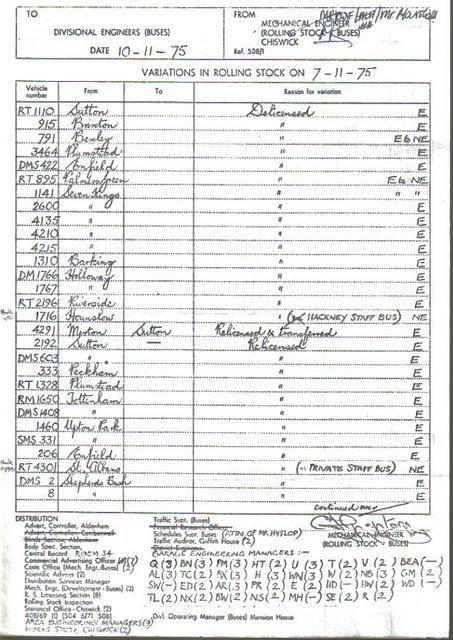 TO
DIVISIONAL ENGINEERS (BUSES)
DATE 10-11-75
FROM
MECHANICAL ENGINEER
(ROLLING STOCK BUSES)
CHISWICK
Ref. 508/1
VARIATIONS IN ROLLING STOCK ON 7-11-75
Vehicle number From To Reason for variation
RT 1110 Sutton Delicensed E
915 Brixton " E
791 Bexley " E to NE
3464 Plumstead " E
DMS 422 Enfield " E
RT 895 Palmers Green " E to NE
1141 Seven Kings " " "
2600 " " E
4135 " " E
4210 " " E
4215 " " E
1310 Barking " E
DM 1766 Holloway " E
1767 " " E
RT 2196 Riverside " E
1716 Hounslow " (HACKNEY STAFF BUS) NE
4291 Merton Sutton Relicensed & transferred E
2192 Sutton — Relicensed E
DMS 603 " " E
333 Peckham " E
RT 1328 Plumstead " E
RM 1650 Tottenham " E
DMS 1408 " " E
1460 Upton Park " E
SMS 331 " " E
206 Enfield " E
RT 4301 St. Albans " (PRIVATE STAFF BUS) NE
DMS 2 Shepherds Bush " E
8 " " E
continued over
MECHANICAL ENGINEER
(ROLLING STOCK - BUSES)
DISTRIBUTION
Advert. Controller, Aldenham
Advert. Controller, Camberwell
Blinds Section, Aldenham
Body Spec. Section,
Central Record ROOM 34
Commercial Advertising Officer
Costs Office (Mech. Engr.-Buses)
Scientific Adviser (2)
Distribution Services Manager
Mech. Engr. (Development - Buses) (2)
R. S. Licensing Section (8)
Rolling Stock Inspection
Statistical Office - Chiswick (2)
AREA ENGINEERING MANAGERS (9)
WORKS STUDY, CHISWICK (2)
Traffic Supt. (Buses)
Financial Research Office
Schedules Supt. (Buses) (ATTN OF MR HYSLOP)
Traffic Auditor, Griffith House (2)
District Engineers
GARAGE ENGINEERING MANAGERS :-
Q (3) BN (3) PM (3) HT (2) U (3) T (2) V (2) BEA (-)
AL (3) TC (2) BX (3) H (3) WN (3) W (2) NB (3) GM (2)
SW (-) ED (2) AR (3) PR (2) E (2) WD (-) HW (2) WD (-)
TL (2) NX (2) BW (2) NS (2) MH (-) SE (2) R (2)
Divl. Operating Manager (Buses) Mansion House